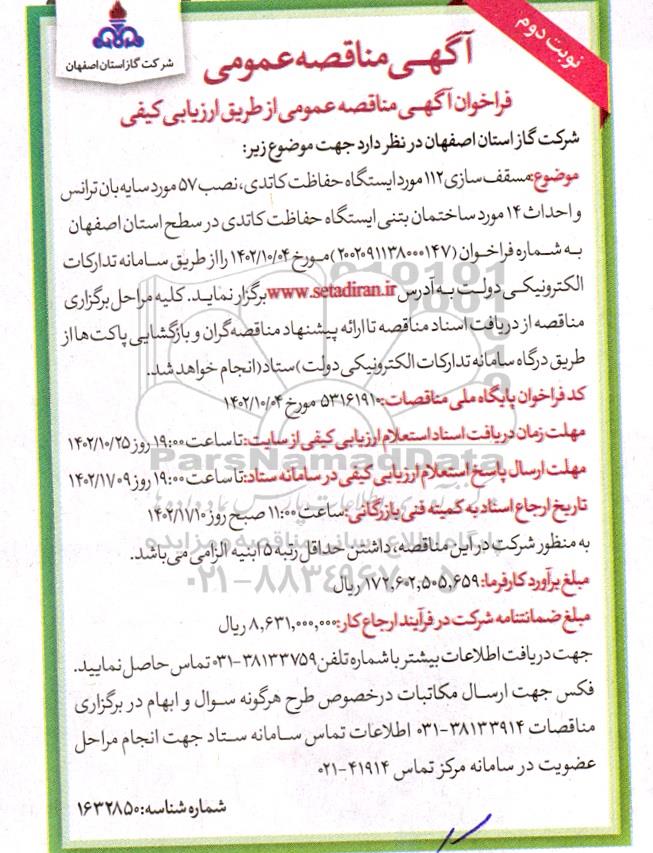 شرکت گاز استان اصفهان
نوبت دوم
آگهی مناقصه عمومی
فراخوان آگهی مناقصه عمومی از طریق ارزیابی کیفی
شرکت گاز استان اصفهان در نظر دارد جهت موضوع زیر:
موضوع: مسقف سازی ۱۱۲ مورد ایستگاه حفاظت کاتدی، نصب ۵۷ مورد سایه بان ترانس
و احداث ۱۴ مورد ساختمان بتنی ایستگاه حفاظت کاتدی در سطح استان اصفهان
به شماره فراخوان (۲۰۰۲۰۹۱۱۳۸۰۰۰۱۴۷) مورخ ۱۴۰۲/۱۰/۰۴ را از طریق سامانه تدارکات
الکترونیکی دولت به آدرس www.setadiran.ir برگزار نماید. کلیه مراحل برگزاری
مناقصه از دریافت اسناد مناقصه تا ارائه پیشنهاد مناقصه گران و بازگشایی پاکت ها از
طریق درگاه سامانه تدارکات الکترونیکی دولت) ستاد( انجام خواهد شد.
کد فراخوان پایگاه ملی مناقصات: ۵۳۱۶۱۹۱۰ مورخ ۱۴۰۲/۱۰/۰۴
مهلت زمان دریافت اسناد استعلام ارزیابی کیفی از سایت: تا ساعت ۱۹:۰۰ روز ۱۴۰۲/۱۰/۲۵
مهلت ارسال پاسخ استعلام ارزیابی کیفی در سامانه ستاد: تا ساعت ۱۹:۰۰ روز ۱۴۰۲/۱۱/۰۹
تاریخ ارجاع اسناد به کمیته فنی بازرگانی: ساعت ۱۱:۰۰ صبح روز ۱۴۰۲/۱۱/۱۰
به منظور شرکت در این مناقصه، داشتن حداقل رتبه ۵ ابنیه الزامی می باشد.
مبلغ برآورد کارفرما: ۱۷۲,۶۰۲,۵۰۵,۶۵۹ ریال
مبلغ ضمانتنامه شرکت در فرآیند ارجاع کار: ۸,۶۳۱,۰۰۰,۰۰۰ ریال
جهت دریافت اطلاعات بیشتر با شماره تلفن ۳۸۱۳۳۷۵۹-۰۳۱ تماس حاصل نمایید.
فکس جهت ارسال مکاتبات درخصوص طرح هرگونه سوال و ابهام در برگزاری
مناقصات ۳۸۱۳۳۹۱۴-۰۳۱ اطلاعات تماس سامانه ستاد جهت انجام مراحل
عضویت در سامانه مرکز تماس ۴۱۹۱۴-۰۲۱
شماره شناسه: ۱۶۳۲۸۵۰
ParsNamadData
پایگاه اطلاع رسانی مناقصه و مزایده
۰۲۱-۸۸۳۴۹۶۷۰-۵